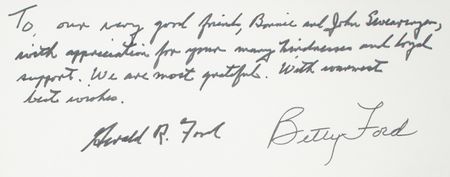 To, our very good friends, Bonnie and John Swearingen,
with appreciation for your many kindnesses and loyal
support. We are most grateful. With warmest
best wishes.
Gerald R. Ford Betty Ford